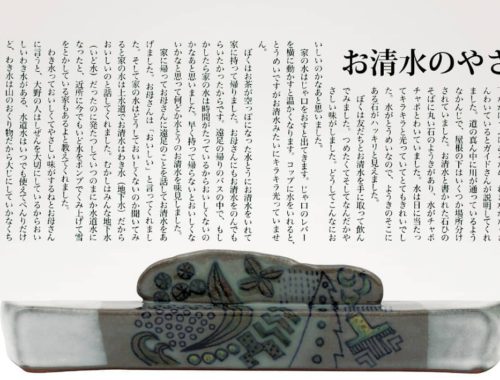 お清水のやさ
んわいているとガイドさんが説明してくれ
ました。道の真ん中に川が通っているよう
なかんじで、屋根の下はいくつか場所分け
されていました。お清水と書かれた石ひの
そばに丸い石のようきがあり、水がチャポ
チャポとわいていました。水は日に当たっ
てキラキラと光っていてとてもきれいでし
た。水がとうめいなので、ようきのそこに
ある石がハッキリと見えました。
ぼくは友だちとお清水を手に取って飲ん
でみました。つめたくてそしてなんだかや
さしい味がしました。どうしてこんなにお
いしいのかなあと思いました。
家の水はじゃ口をおすと出てきます。じゃ口のレバー
を横に動かすと温かくなります。コップに水をいれると、
とうめいですがお清水みたいにキラキラ光っていませ
ん。
ぼくはお茶が空っぽになった水とうにお清水をいれて
家に持って帰りました。お母さんにもお清水をのんでも
らいたかったからです。遠足の帰りのバスの中で、もし
かしたら家の水は時間がたっているからおいしくないの
かなあと思いました。早く持って帰らないとおいしくな
いかなと思って何どか水とうのお清水を味見しました。
家に帰ってお母さんに遠足のことを話してお清水をあ
げました。お母さんは、「おいしい」と言ってくれまし
た。そして家の水はどうしておいしくないのか聞いてみ
ると家の水は上水道でお清水はわき水（地下水）だから
おいしいのと話してくれました。むかしはみんな地下水
（いど水）だったのに発たつしていつのまにか水道水に
なったと、近所に今でもいど水をポンプでくみ上げて雪
をとかしている家もあるよと教えてくれました。
わき水っておいしくてやさしい味がするねとお母さん
に言うと、大野の人はしぜんを大切にしているからおい
しいわき水がある、水道水はいつでも使えてべんりだけ
ど、わき水は山のおくり物だから大じにしていかなくち